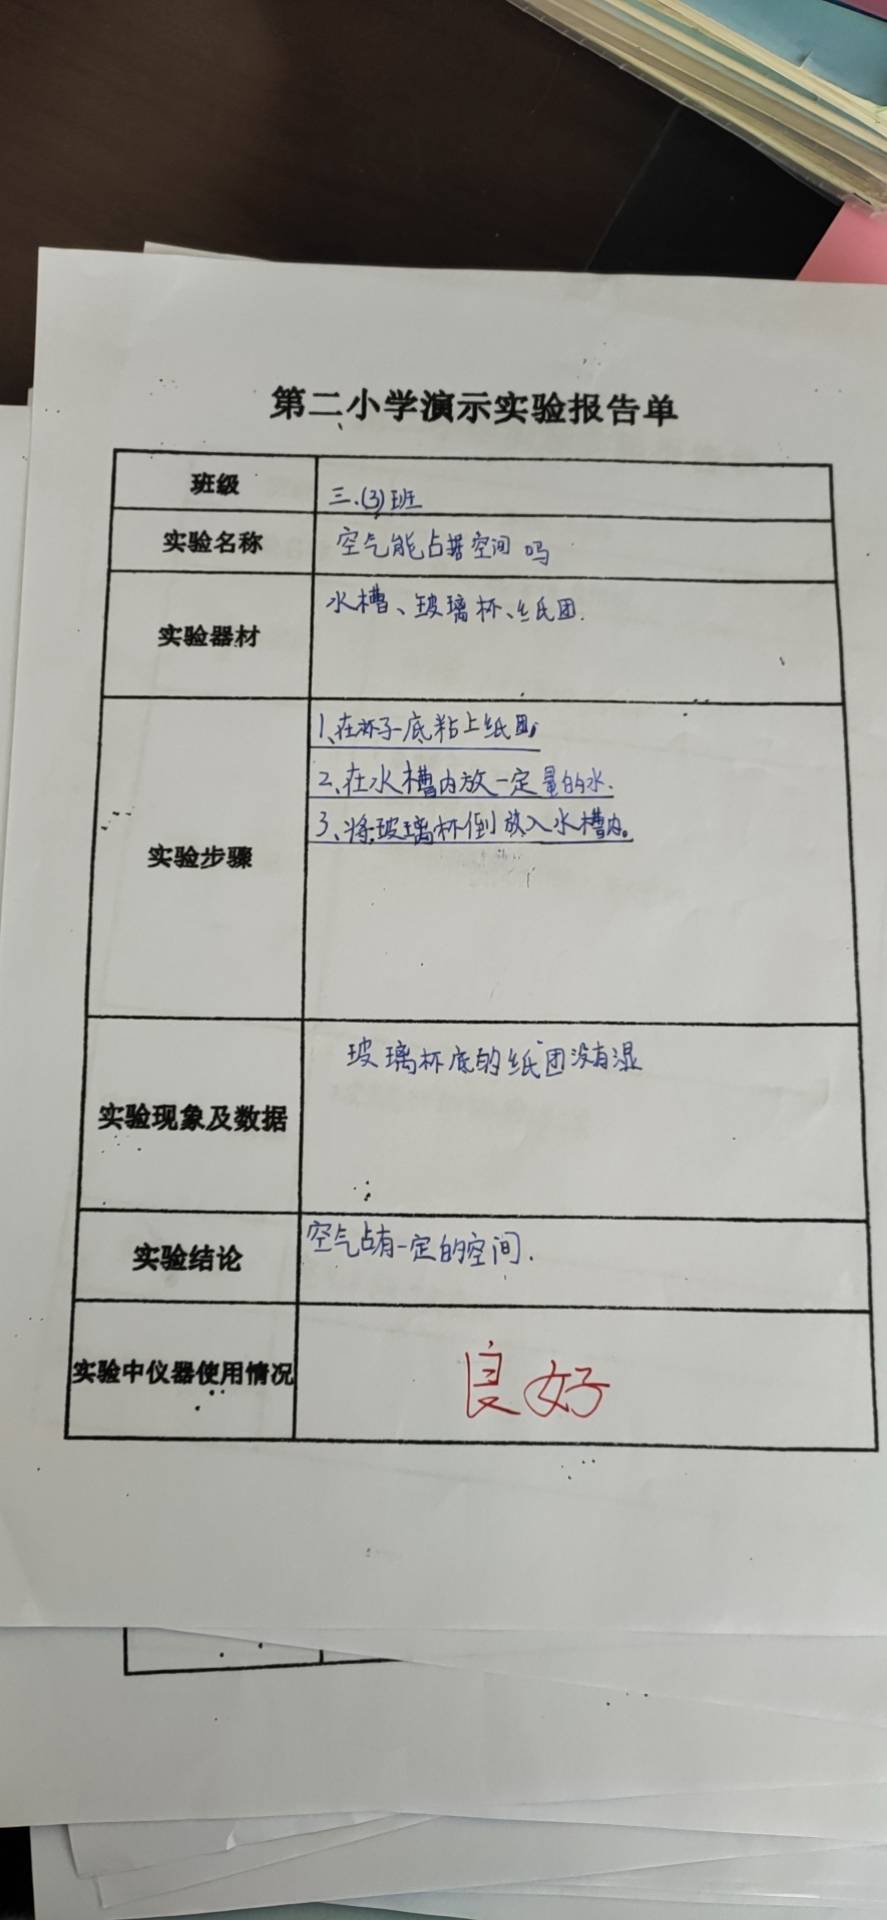 第二小学演示实验报告单
班级
三.(3)班
实验名称
空气能占据空间吗
实验器材
水槽、玻璃杯、纸团.
实验步骤
1、在杯子底粘上纸团。
2、在水槽内放一定量的水.
3、将玻璃杯倒放入水槽内。
实验现象及数据
玻璃杯底的纸团没有湿
实验结论
空气占有一定的空间.
实验中仪器使用情况
良好